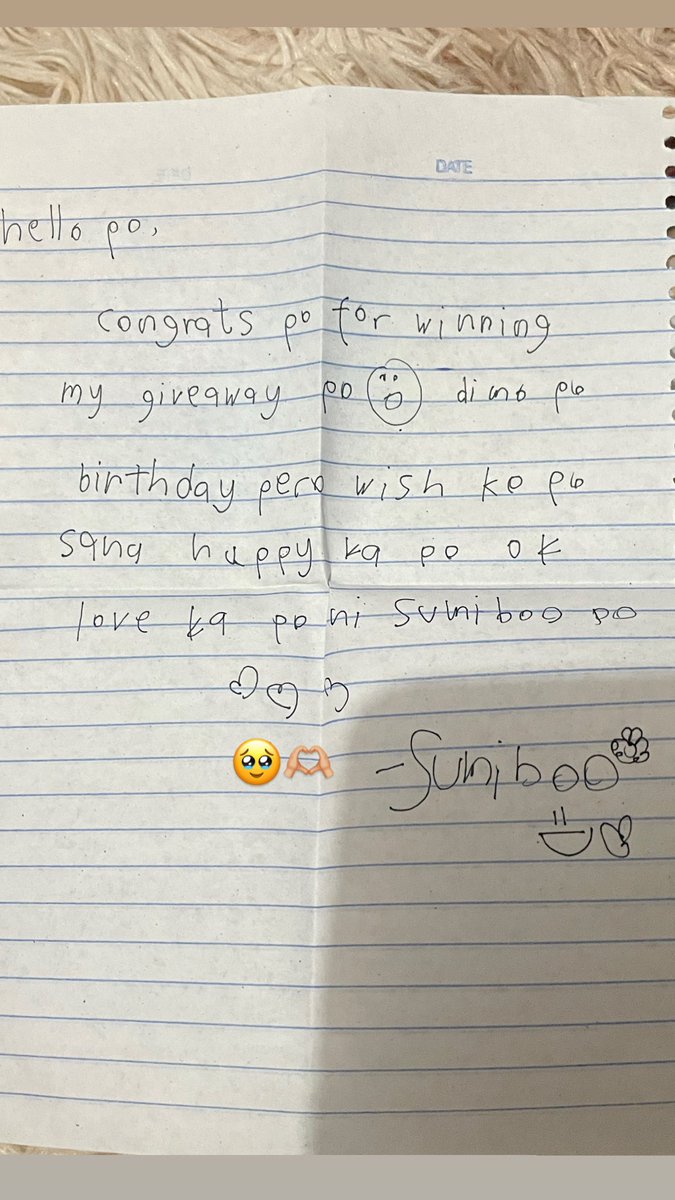 DATE
hello po,
congrats po for winning
my giveaway po dimo po
birthday pero wish ko po
sana happy ka po ok
love ka po ni Suniboo po
-Suniboo